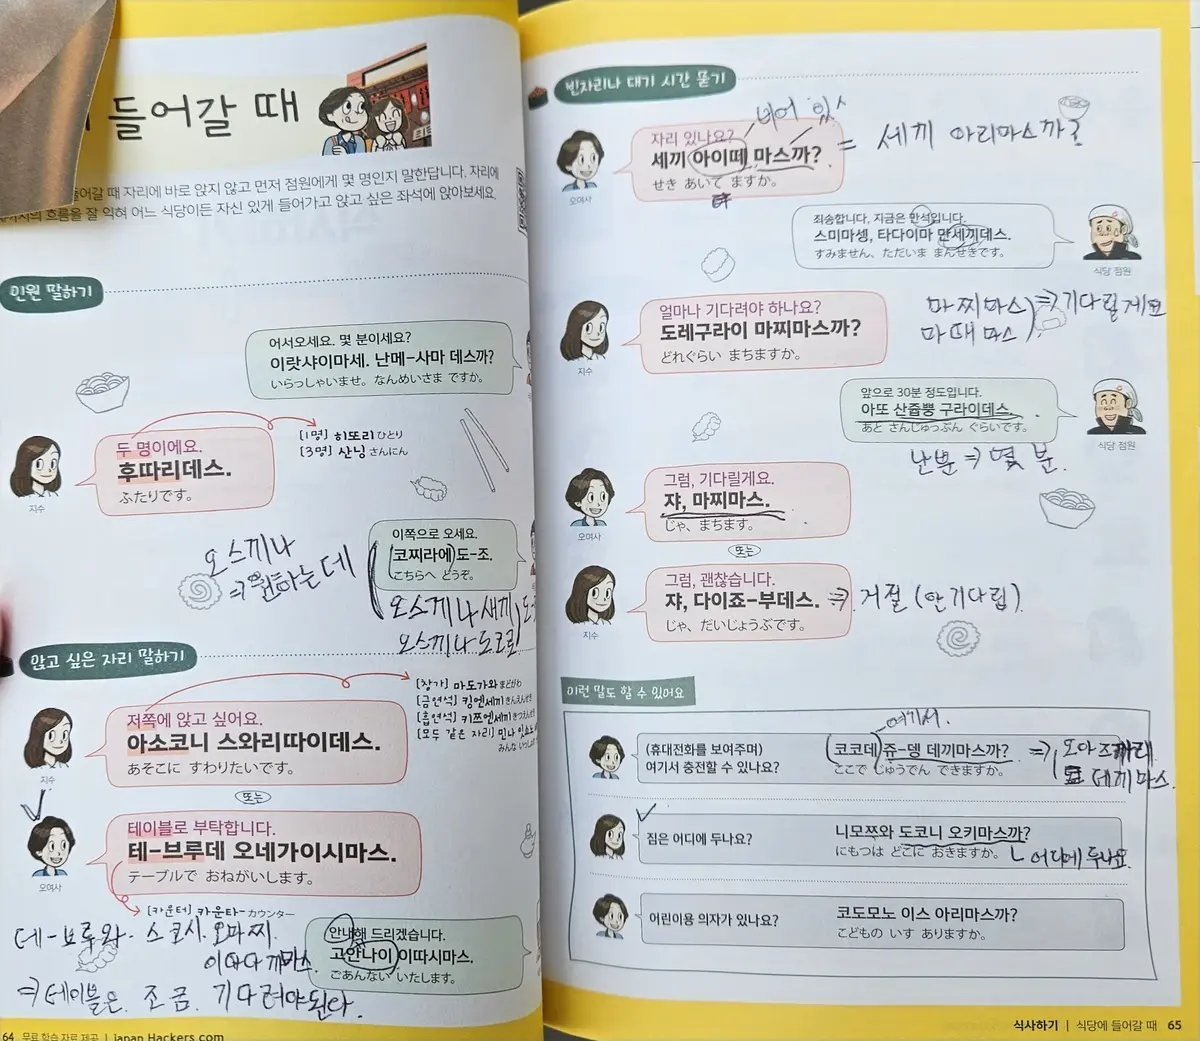 들어갈 때
들어갈 때 자리에 바로 앉지 않고 먼저 점원에게 몇 명인지 말한답니다. 자리에
흐름을 잘 익혀 어느 식당이든 자신 있게 들어가고 앉고 싶은 좌석에 앉아보세요.
인원 말하기
어서오세요. 몇 분이세요?
이랏샤이마세. 난메-사마 데스까?
いらっしゃいませ。なんめいさま ですか。
두 명이에요.
후따리데스.
ふたりです。
지수
[1명] 히또리 ひとり
[3명] 산닝 さんにん
이쪽으로 오세요.
(코찌라에) 도-조.
こちらへ どうぞ。
오스끼나
⇒ 원하는데
오스끼나 도코로
앉고 싶은 자리 말하기
[창가] 마도가와 まどがわ
[금연석] 킹엔세끼 きんえんせき
[흡연석] 키쯔엔세끼 きつえんせき
[모두 같은 자리] 민나 잇쇼노
みんな
저쪽에 앉고 싶어요.
아소코니 스와리따이데스.
あそこに すわりたいです。
지수
또는
테이블로 부탁합니다.
테-브루데 오네가이시마스.
テーブルで おねがいします。
오여사
[카운터] 카운타- カウンター
안내해 드리겠습니다.
고안나이 이따시마스.
ごあんない いたします。
데-브루와. 스코시. 오마찌.
이따다끼마스.
⇒ 테이블은 조금. 기다려야된다.
64 무료 학습 자료 제공 | japan.Hackers.com
빈자리나 대기 시간 묻기
비어 있
자리 있나요?
세끼 아이떼 마스까?
せき あいて ますか。
오여사
= 세끼 아리마스까?
죄송합니다, 지금은 만석입니다.
스미마셍, 타다이마 만세끼데스.
すみません、ただいま まんせきです。
식당 점원
얼마나 기다려야 하나요?
도레구라이 마찌마스까?
どれぐらい まちますか。
지수
마찌마스 ⇒ 기다릴게요
마때마스
앞으로 30분 정도입니다.
아또 산쥽뿡 구라이데스.
あと さんじゅっぷん ぐらいです。
식당 점원
난뿐 ⇒ 몇 분.
그럼, 기다릴게요.
쟈, 마찌마스.
じゃ、まちます。
오여사
또는
그럼, 괜찮습니다.
쟈, 다이죠-부데스.
じゃ、だいじょうぶです。
지수
⇒ 거절 (안기다림).
이런 말도 할 수 있어요
여기서.
(휴대전화를 보여주며)
여기서 충전할 수 있나요?
(코코데) 쥬-뎅 데끼마스까?
ここで じゅうでん できますか。
⇒
데끼마스.
짐은 어디에 두나요?
니모쯔와 도코니 오키마스까?
にもつは どこに おきますか。
ㄴ 어디에 두나요.
어린이용 의자가 있나요?
코도모노 이스 아리마스까?
こどもの いす ありますか。
식사하기 | 식당에 들어갈 때 65